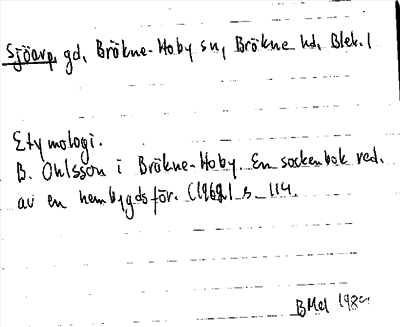 Sjöarp, gd, Bräkne-Hoby sn, Bräkne hd, Blek. l
Etymologi.
B. Ohlsson i Bräkne-Hoby. En sockenbok red.
av en hembygdsför. s. 114.
BMel